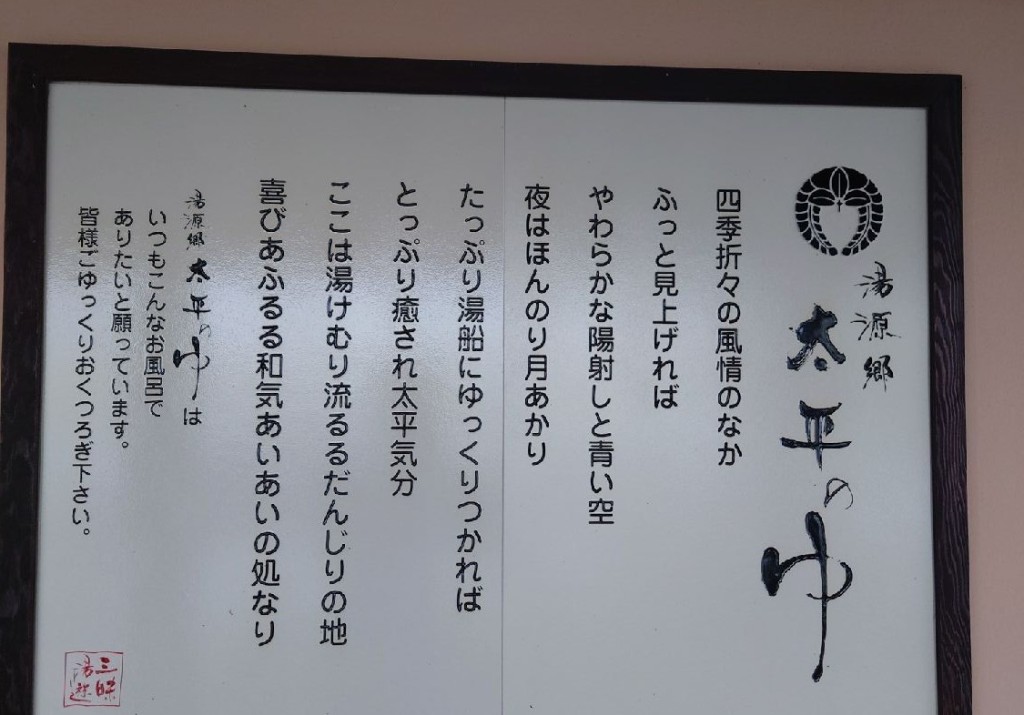 湯源郷
太平のゆ
四季折々の風情のなか
ふっと見上げれば
やわらかな陽射しと青い空
夜はほんのり月あかり
たっぷり湯船にゆっくりつかれば
とっぷり癒され太平気分
ここは湯けむり流るるだんじりの地
喜びあふるる和気あいあいの処なり
湯源郷 太平のゆは
いつもこんなお風呂で
ありたいと願っています。
皆様ごゆっくりおくつろぎ下さい。
三昧
湯遊